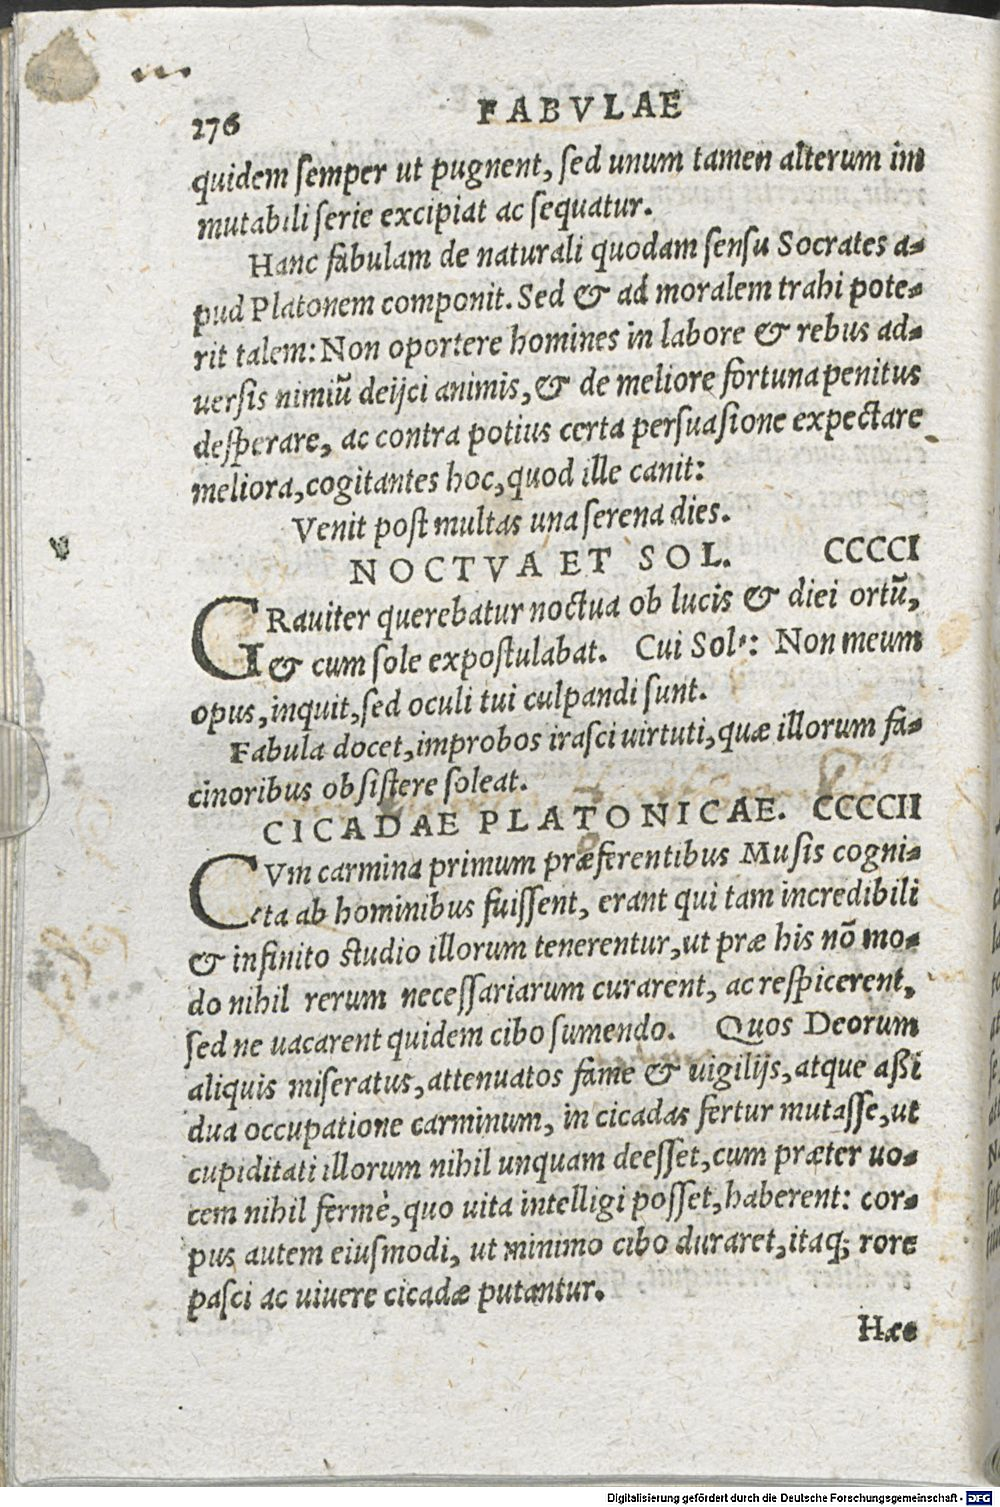 276 FABVLAE
quidem semper ut pugnent, sed unum tamen alterum im
mutabili serie excipiat ac sequatur.
Hanc fabulam de naturali quodam sensu Socrates a-
pud Platonem componit. Sed & ad moralem trahi pote-
rit talem: Non oportere homines in labore & rebus ad-
uersis nimiū deijci animis, & de meliore fortuna penitus
desperare, ac contra potius certa persuasione expectare
meliora, cogitantes hoc, quod ille canit:
Venit post multas una serena dies.
NOCTVA ET SOL. CCCCI
GRauiter querebatur noctua ob lucis & diei ortū,
& cum sole expostulabat. Cui Sol: Non meum
opus, inquit, sed oculi tui culpandi sunt.
Fabula docet, improbos irasci uirtuti, quæ illorum fa-
cinoribus obsistere soleat.
CICADAE PLATONICAE. CCCCII
CVm carmina primum præferentibus Musis cogni-
ta ab hominibus fuissent, erant qui tam incredibili
& infinito studio illorum tenerentur, ut præ his nō mo-
do nihil rerum necessariarum curarent, ac respicerent,
sed ne uacarent quidem cibo sumendo. Quos Deorum
aliquis miseratus, attenuatos fame & uigilijs, atque aßi
dua occupatione carminum, in cicadas fertur mutasse, ut
cupiditati illorum nihil unquam deesset, cum præter uo-
cem nihil fermè, quo uita intelligi posset, haberent: cor-
pus autem eiusmodi, ut minimo cibo duraret, itaq; rore
pasci ac uiuere cicadæ putantur.
Hæc
Digitalisierung gefördert durch die Deutsche Forschungsgemeinschaft - DFG